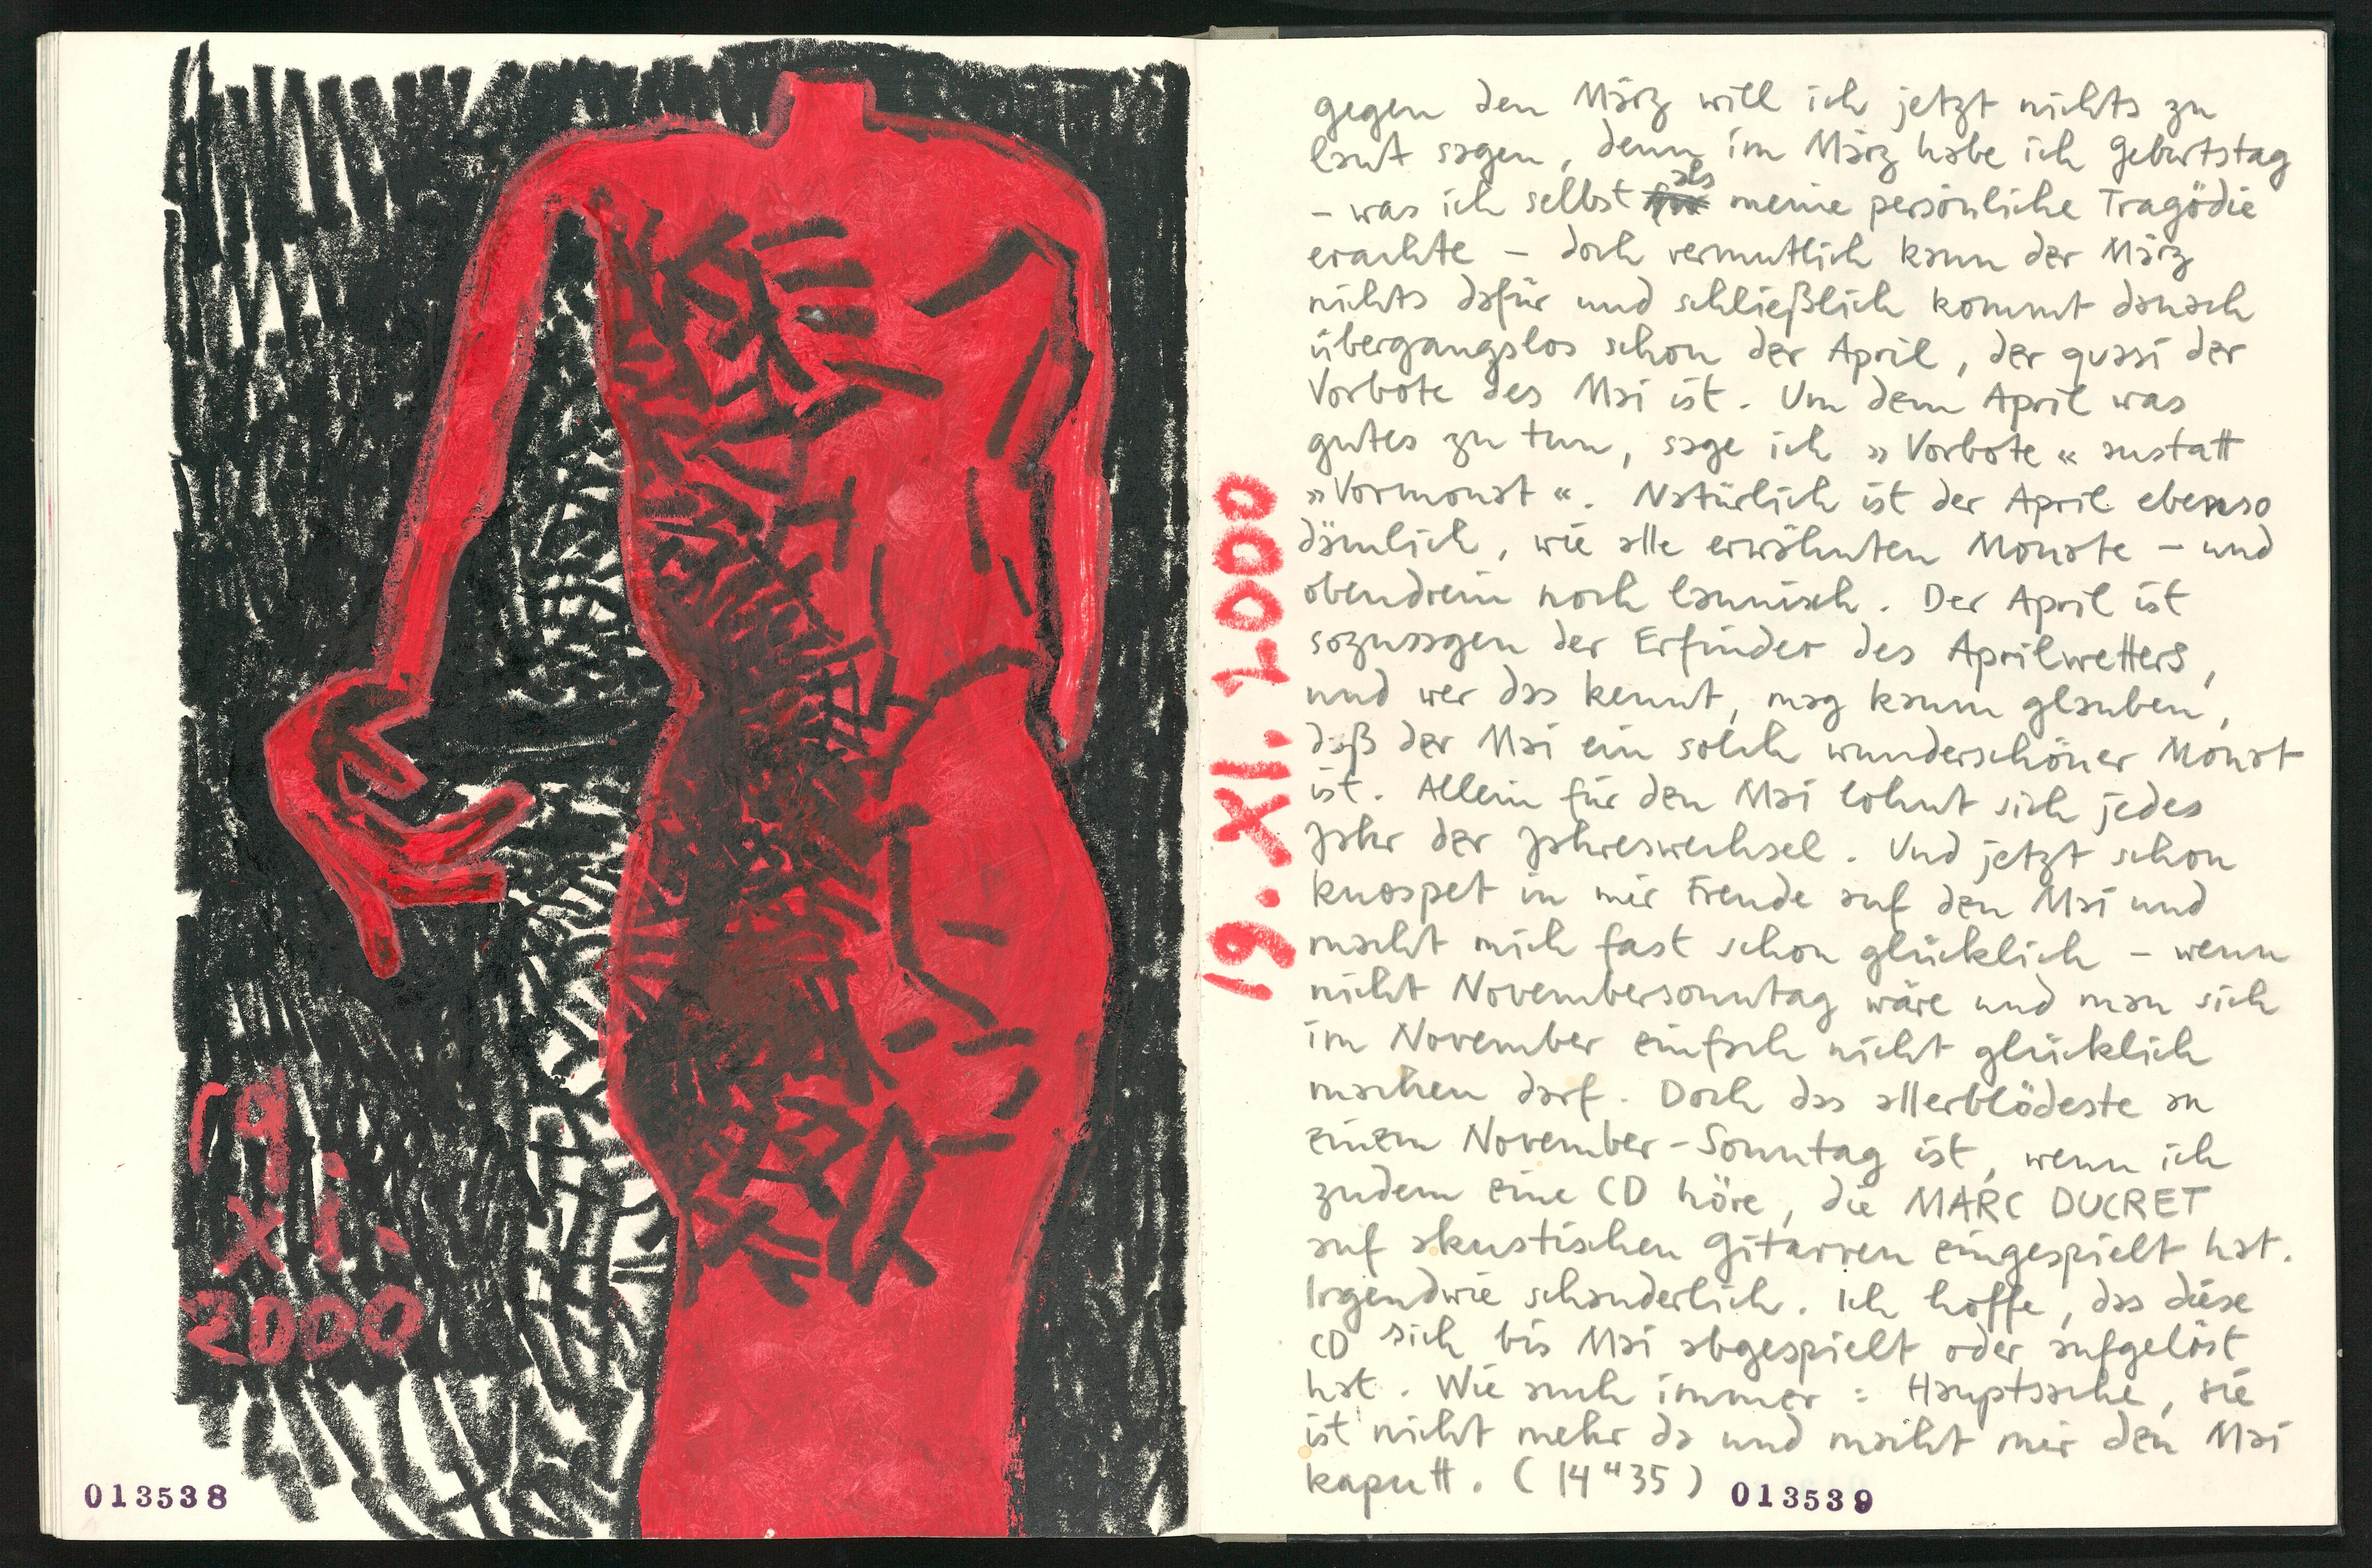 19.
XI.
2000
013538
19. XI. 2000
gegen den März will ich jetzt nichts zu
laut sagen, denn im März habe ich Geburtstag
– was ich selbst als meine persönliche Tragödie
erachte – doch vermutlich kann der März
nichts dafür und schließlich kommt danach
übergangslos schon der April, der quasi der
Vorbote des Mai ist. Um dem April was
gutes zu tun, sage ich »Vorbote« anstatt
»Vormonat«. Natürlich ist der April ebenso
dämlich, wie alle erwähnten Monate – und
obendrein noch launisch. Der April ist
sozusagen der Erfinder des Aprilwetters,
und wer das kennt, mag kaum glauben,
daß der Mai ein solch wunderschöner Monat
ist. Allein für den Mai lohnt sich jedes
Jahr der Jahreswechsel. Und jetzt schon
knospet in mir Freude auf den Mai und
macht mich fast schon glücklich – wenn
nicht Novembersonntag wäre und man sich
im November einfach nicht glücklich
machen darf. Doch das allerblödeste an
einem November-Sonntag ist, wenn ich
zudem eine CD höre, die MARC DUCRET
auf akustischen Gitarren eingespielt hat.
Irgendwie schauderlich. Ich hoffe, das diese
CD sich bis Mai abgespielt oder aufgelöst
hat. Wie auch immer: Hauptsache, sie
ist nicht mehr da und macht mir den Mai
kaputt. (14"35)
013539